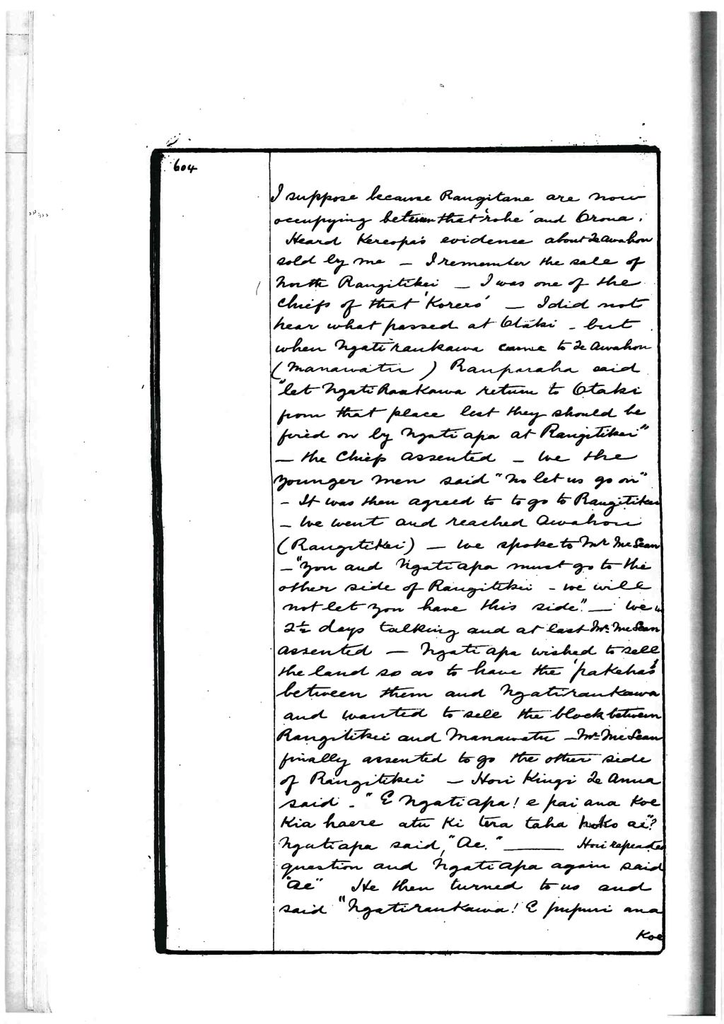 604
I suppose because Rangitane are now
occupying between that 'rohe' and Oroua.
Heard Kereopa's evidence about Te Awahou
sold by me — I remember the sale of
North Rangitikei — I was one of the
Chiefs of that 'Korero' — I did not
hear what passed at Otaki — but
when Ngatiraukawa came to Te Awahou
(Manawatu) Rauparaha said
"let NgatiRaukawa return to Otaki
from that place lest they should be
fired on by Ngatiapa at Rangitikei"
— the Chiefs assented — we the
younger men said "No let us go on"
— It was then agreed to to go to Rangitikei
— We went and reached Awahou
(Rangitikei) — we spoke to Mr McLean
— "You and Ngatiapa must go to the
other side of Rangitikei — we will
not let you have this side" — We
2½ days talking and at last Mr McLean
assented — Ngatiapa wished to sell
the land so as to have the 'pakehas'
between them and Ngatiraukawa
and wanted to sell the block between
Rangitikei and Manawatu — Mr McLean
finally assented to go the other side
of Rangitikei — Hori Kingi Te Anaua
said — "E Ngatiapa! e pai ana Koe
Kia haere atu Ki tera taha noho ai"?
Ngatiapa said, "Ae." — Hori repeated
question and Ngatiapa again said
"ae" He then turned to us and
said "Ngatiraukawa! E pupuri ana
Koe